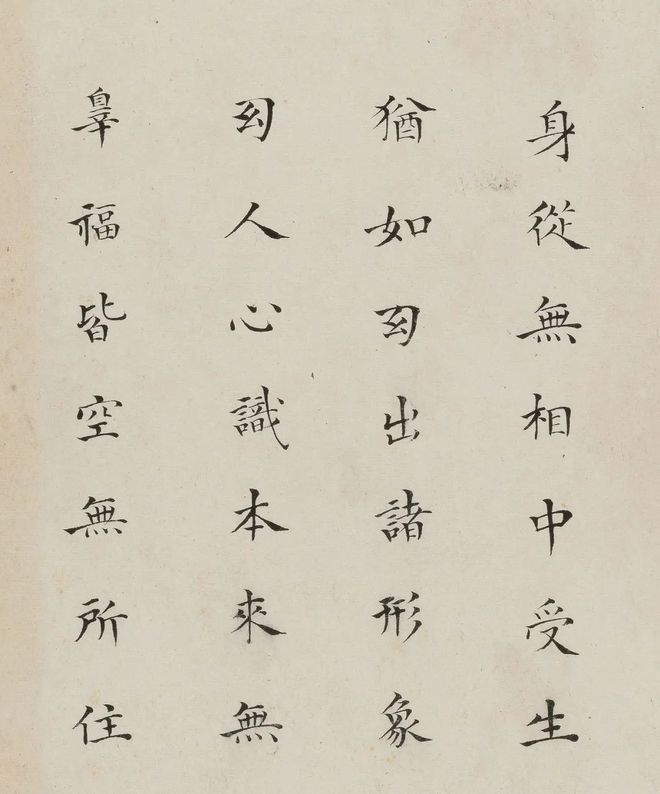 身從無相中受生
猶如𠄔出諸形象
𠄔人心識本來無
辠福皆空無所住